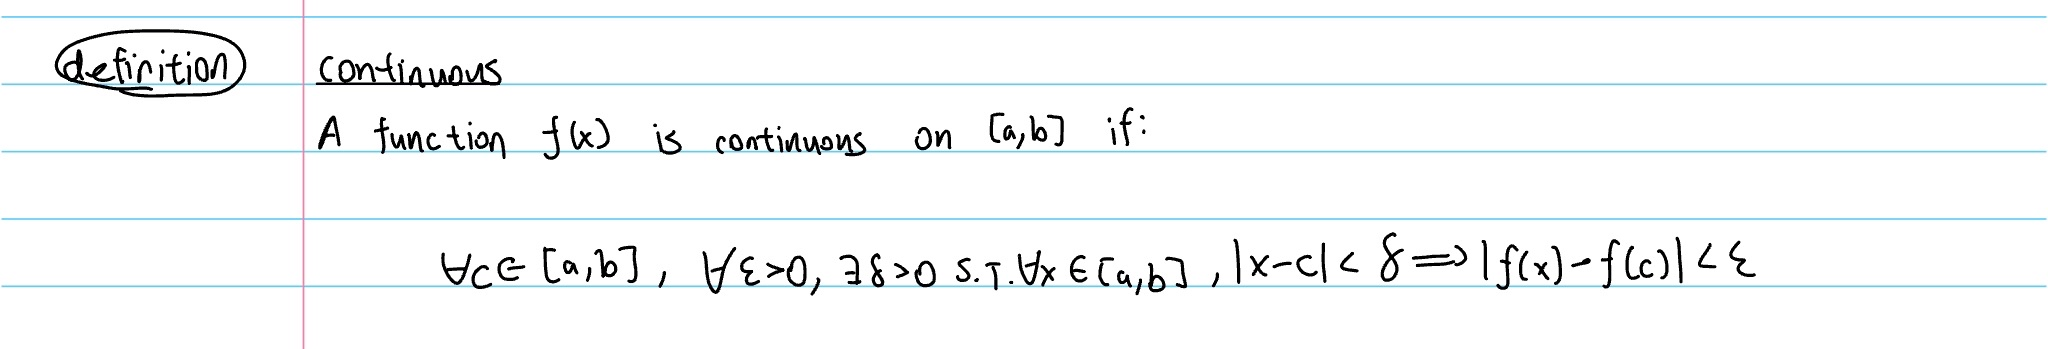 definition continuous
A function f(x) is continuous on [a,b] if:
∀c∈ [a,b], ∀ε>0, ∃δ>0 S.T. ∀x ∈ [a,b], |x-c| < δ ⟹ |f(x)-f(c)| < ε